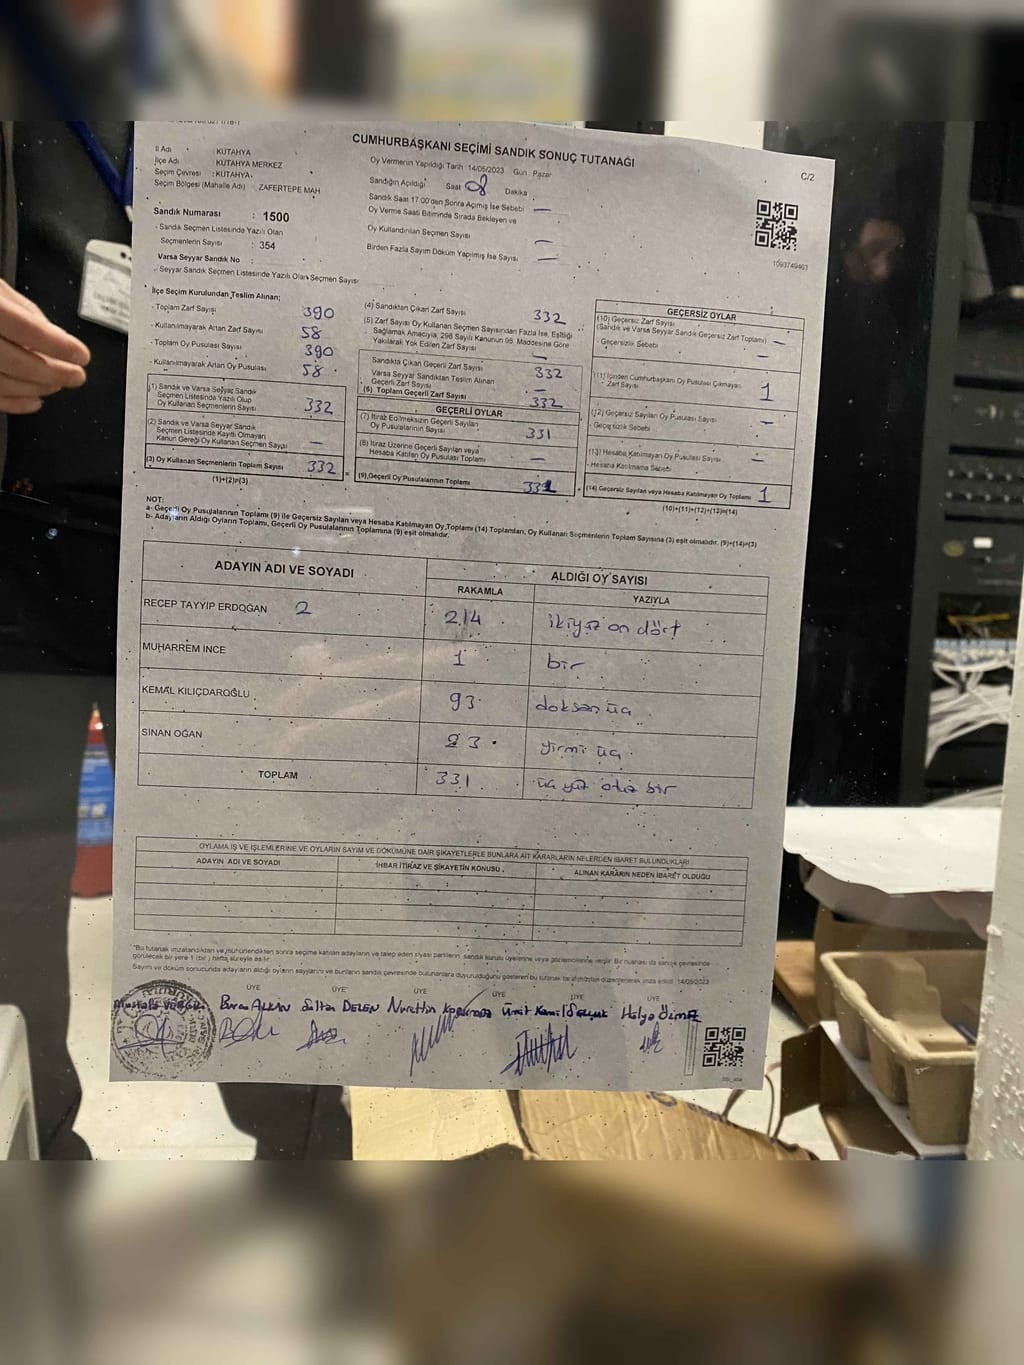 CUMHURBAŞKANI SEÇİMİ SANDIK SONUÇ TUTANAĞI
C/2
İl Adı : KÜTAHYA
İlçe Adı : KÜTAHYA MERKEZ
Seçim Çevresi : KÜTAHYA
Seçim Bölgesi (Mahalle Adı) : ZAFERTEPE MAH
Sandık Numarası : 1500
- Sandık Seçmen Listesinde Yazılı Olan
Seçmenlerin Sayısı : 354
Varsa Seyyar Sandık No :
- Seyyar Sandık Seçmen Listesinde Yazılı Olan Seçmen Sayısı
Oy Vermenin Yapıldığı Tarih : 14/05/2023 Gün : Pazar
Sandığın Açıldığı Saat 08 Dakika
Sandık Saat 17:00'den Sonra Açımış İse Sebebi —
Oy Verme Saati Bitiminde Sırada Bekleyen ve
Oy Kullandırılan Seçmen Sayısı —
Birden Fazla Sayım Döküm Yapılmış İse Sayısı —
1093749463
İlçe Seçim Kurulundan Teslim Alınan;
- Toplam Zarf Sayısı 390
- Kullanılmayarak Artan Zarf Sayısı 58
- Toplam Oy Pusulası Sayısı 390
- Kullanılmayarak Artan Oy Pusulası 58
(1) Sandık ve Varsa Seyyar Sandık
Seçmen Listesinde Yazılı Olup
Oy Kullanan Seçmenlerin Sayısı 332
(2) Sandık ve Varsa Seyyar Sandık
Seçmen Listesinde Kayıtlı Olmayan
Kanun Gereği Oy Kullanan Seçmen Sayısı —
(3) Oy Kullanan Seçmenlerin Toplam Sayısı 332
(1)+(2)=(3)
(4) Sandıktan Çıkan Zarf Sayısı 332
(5) Zarf Sayısı Oy Kullanan Seçmen Sayısından Fazla İse, Eşitliği
Sağlamak Amacıyla, 298 Sayılı Kanunun 98. Maddesine Göre
Yakılarak Yok Edilen Zarf Sayısı —
Sandıkta Çıkan Geçerli Zarf Sayısı 332
Varsa Seyyar Sandıktan Teslim Alınan
Geçerli Zarf Sayısı —
(6) Toplam Geçerli Zarf Sayısı 332
GEÇERLİ OYLAR
(7) İtiraz Edilmeksizin Geçerli Sayılan
Oy Pusulalarının Sayısı 331
(8) İtiraz Üzerine Geçerli Sayılan veya
Hesaba Katılan Oy Pusulası Toplamı —
(9) Geçerli Oy Pusulalarının Toplamı 331
GEÇERSİZ OYLAR
(10) Geçersiz Zarf Sayısı
(Sandık ve Varsa Seyyar Sandık Geçersiz Zarf Toplamı) —
- Geçersizlik Sebebi —
(11) İçinden Cumhurbaşkanı Oy Pusulası Çıkmayan
Zarf Sayısı 1
(12) Geçersiz Sayılan Oy Pusulası Sayısı —
- Geçersizlik Sebebi
(13) Hesaba Katılmayan Oy Pusulası Sayısı —
- Hesaba Katılmama Sebebi
(14) Geçersiz Sayılan veya Hesaba Katılmayan Oy Toplamı 1
(10)+(11)+(12)+(13)=(14)
NOT:
a- Geçerli Oy Pusulalarının Toplamı (9) ile Geçersiz Sayılan veya Hesaba Katılmayan Oy Toplamı (14) Toplamları, Oy Kullanan Seçmenlerin Toplam Sayısına (3) eşit olmalıdır. (9)+(14)=(3)
b- Adayların Aldığı Oyların Toplamı, Geçerli Oy Pusulalarının Toplamına (9) eşit olmalıdır.
ADAYIN ADI VE SOYADI ALDIĞI OY SAYISI
RAKAMLA YAZIYLA
RECEP TAYYİP ERDOĞAN 2 214 ikiyüz on dört
MUHARREM İNCE 1 bir
KEMAL KILIÇDAROĞLU 93 doksan üç
SİNAN OĞAN 23 yirmi üç
TOPLAM 331 üç yüz otuz bir
OYLAMA İŞ VE İŞLEMLERİNE VE OYLARIN SAYIM VE DÖKÜMÜNE DAİR ŞİKAYETLERLE BUNLARA AİT KARARLARIN NELERDEN İBARET BULUNDUKLARI
ADAYIN ADI VE SOYADI İHBAR İTİRAZ VE ŞİKAYETİN KONUSU ALINAN KARARIN NEDEN İBARET OLDUĞU
Sayım ve döküm sonucunda adayların aldığı oyların sayılarını ve bunların sandık çevresinde bulunanlara duyurulduğunu gösteren bu tutanak tarafımızdan düzenlenerek imza edildi. 14/05/2023
ÜYE ÜYE ÜYE ÜYE ÜYE
Saltan DELEN Nurettin Ümit Kamil Selçuk